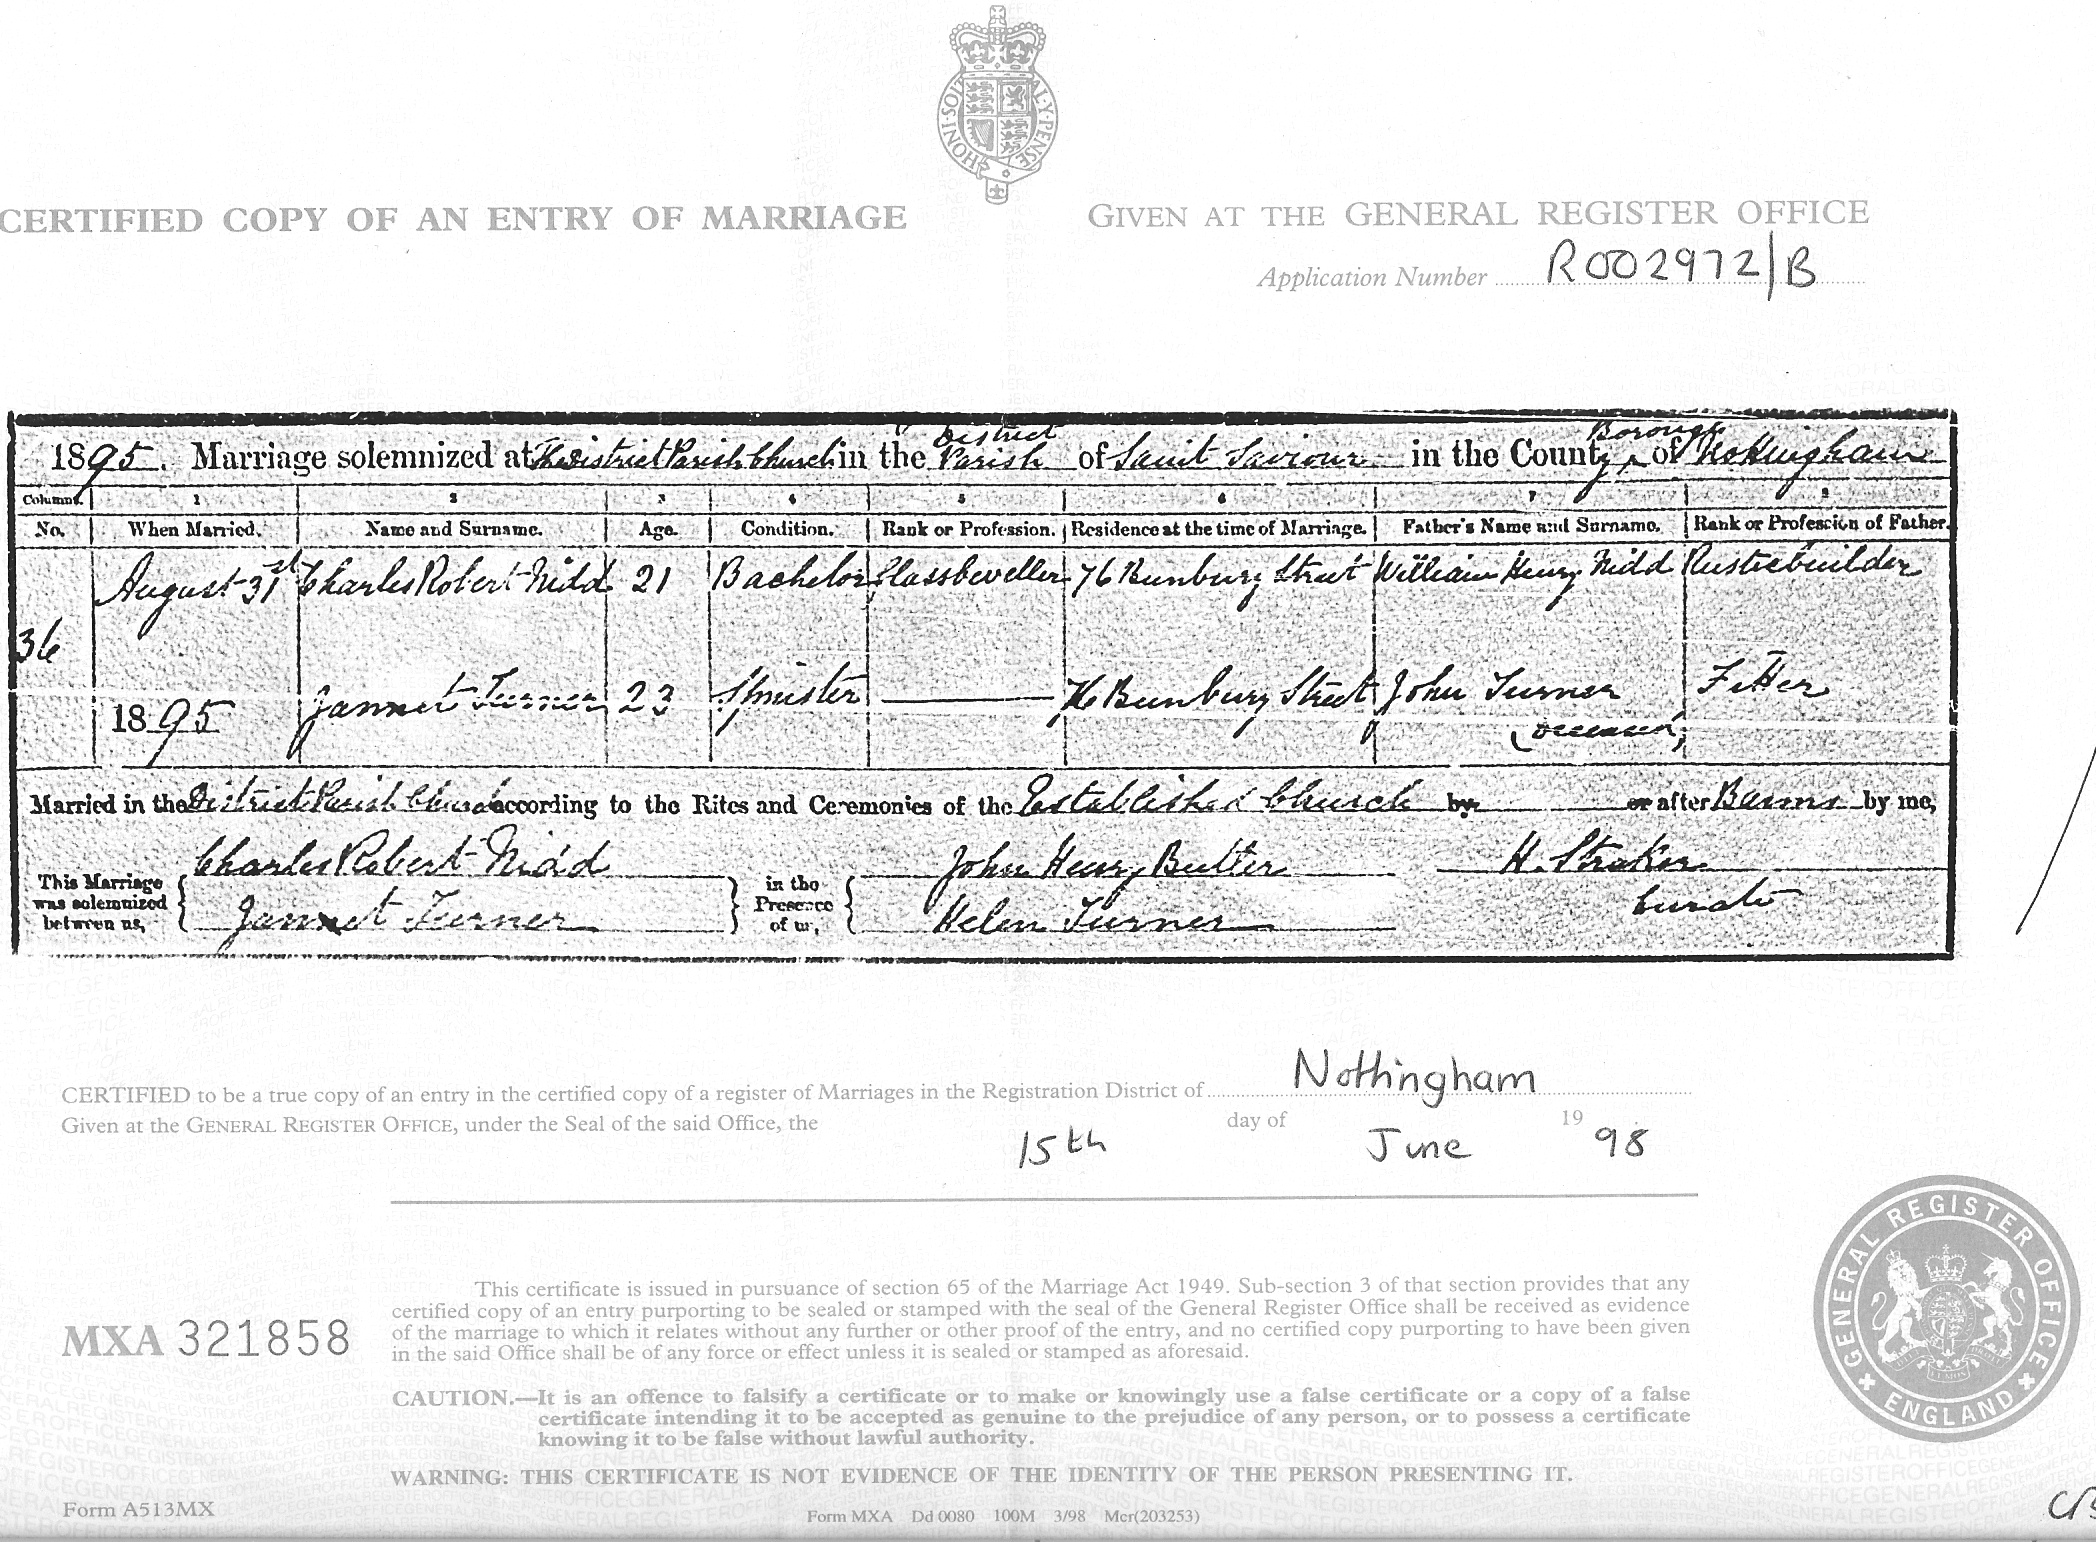 HONI·SOIT
AL·Y·PENSE
CERTIFIED COPY OF AN ENTRY OF MARRIAGE
GIVEN AT THE GENERAL REGISTER OFFICE
Application Number R002972/B
1895. Marriage solemnized at The District Parish Church in the District Parish of Saint Saviour in the County Borough of Nottingham
Columns. 1 2 3 4 5 6 7 8
No. When Married. Name and Surname. Age. Condition. Rank or Profession. Residence at the time of Marriage. Father's Name and Surname. Rank or Profession of Father.
August 31st Charles Robert Nidd 21 Bachelor Glassbeveller 76 Bunbury Street William Henry Nidd Rusticbuilder
36
1895 Jannet Turner 23 Spinster 76 Bunbury Street John Turner Fitter
(deceased)
Married in the District Parish Church according to the Rites and Ceremonies of the Established Church by or after Banns by me,
This Marriage was solemnized between us, { Charles Robert Nidd } in the Presence of us, { John Henry Butler H. Straker
Jannet Turner Helen Turner Curate
CERTIFIED to be a true copy of an entry in the certified copy of a register of Marriages in the Registration District of Nottingham
Given at the GENERAL REGISTER OFFICE, under the Seal of the said Office, the 15th day of June 1998
This certificate is issued in pursuance of section 65 of the Marriage Act 1949. Sub-section 3 of that section provides that any
certified copy of an entry purporting to be sealed or stamped with the seal of the General Register Office shall be received as evidence
of the marriage to which it relates without any further or other proof of the entry, and no certified copy purporting to have been given
in the said Office shall be of any force or effect unless it is sealed or stamped as aforesaid.
MXA 321858
CAUTION.—It is an offence to falsify a certificate or to make or knowingly use a false certificate or a copy of a false
certificate intending it to be accepted as genuine to the prejudice of any person, or to possess a certificate
knowing it to be false without lawful authority.
WARNING: THIS CERTIFICATE IS NOT EVIDENCE OF THE IDENTITY OF THE PERSON PRESENTING IT.
GENERAL REGISTER OFFICE
ENGLAND
Form A513MX
Form MXA Dd 0080 100M 3/98 Mcr(203253)